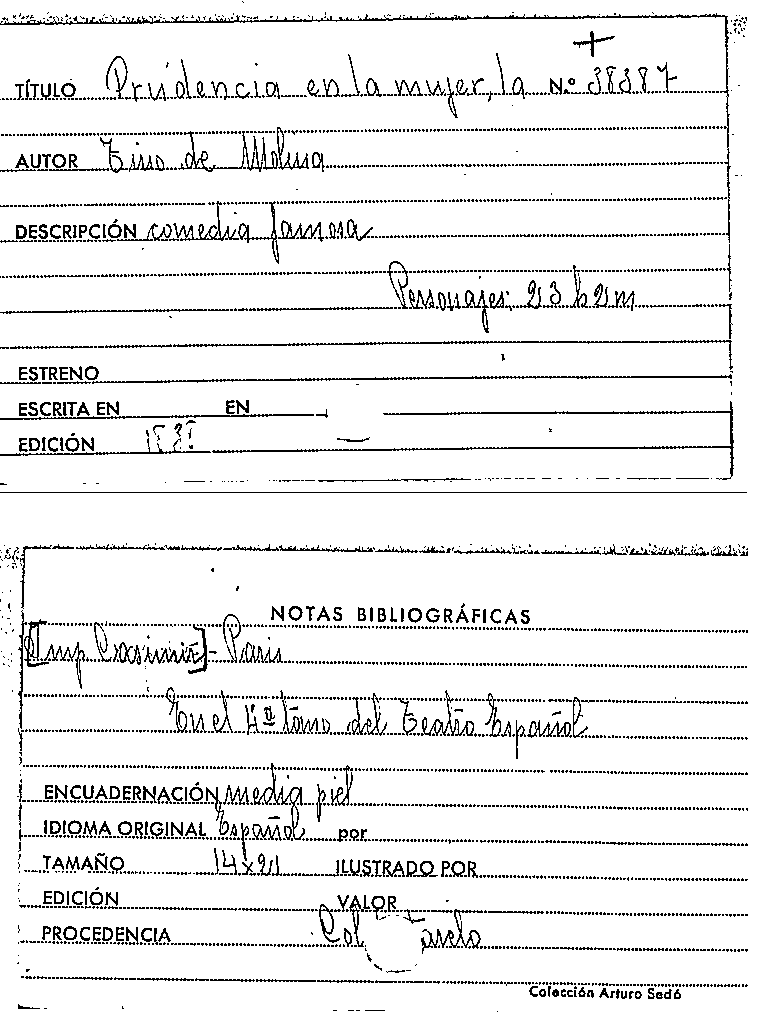 +
TÍTULO Prudencia en la mujer, la N.º 38387
AUTOR Tirso de Molina
DESCRIPCIÓN comedia famosa
Personajes: 23 h 2 m
ESTRENO
ESCRITA EN EN
EDICIÓN
NOTAS BIBLIOGRÁFICAS
[Imp Casimir] - Paris
En el 4º tomo del Teatro Español
ENCUADERNACIÓN media piel
IDIOMA ORIGINAL Español por
TAMAÑO 14x21 ILUSTRADO POR
EDICIÓN VALOR
PROCEDENCIA Col
Colección Arturo Sedó